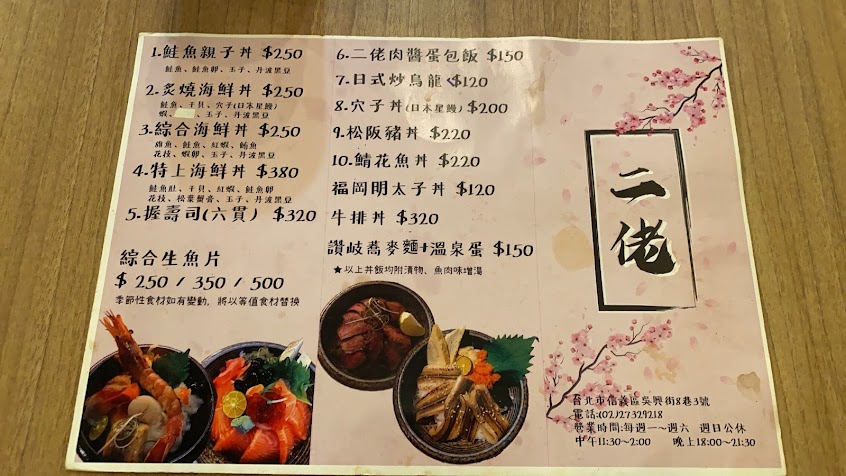 1.鮭魚親子丼 $250
鮭魚、鮭魚卵、玉子、丹波黑豆
2.炙燒海鮮丼 $250
鮭魚、干貝、穴子(日本星鰻)
蝦、玉子、丹波黑豆
3.綜合海鮮丼 $250
旗魚、鮭魚、紅蝦、鮪魚
花枝、蝦卵、玉子、丹波黑豆
4.特上海鮮丼 $380
鮭魚肚、干貝、紅蝦、鮭魚卵
花枝、松葉蟹膏、玉子、丹波黑豆
5.握壽司(六貫) $320
綜合生魚片
$ 250 / 350 / 500
季節性食材如有變動, 將以等值食材替換
6.二佬肉醬蛋包飯 $150
7.日式炒烏龍 $120
8.穴子丼(日本星鰻) $200
9.松阪豬丼 $220
10.鯖花魚丼 $220
福岡明太子丼 $120
牛排丼 $320
讚岐蕎麥麵+溫泉蛋 $150
★以上丼飯均附漬物、魚肉味增湯
二佬
台北市信義區吳興街8巷3號
電話:(02)27329218
營業時間:每週一~週六 週日公休
中午11:30~2:00 晚上18:00~21:30